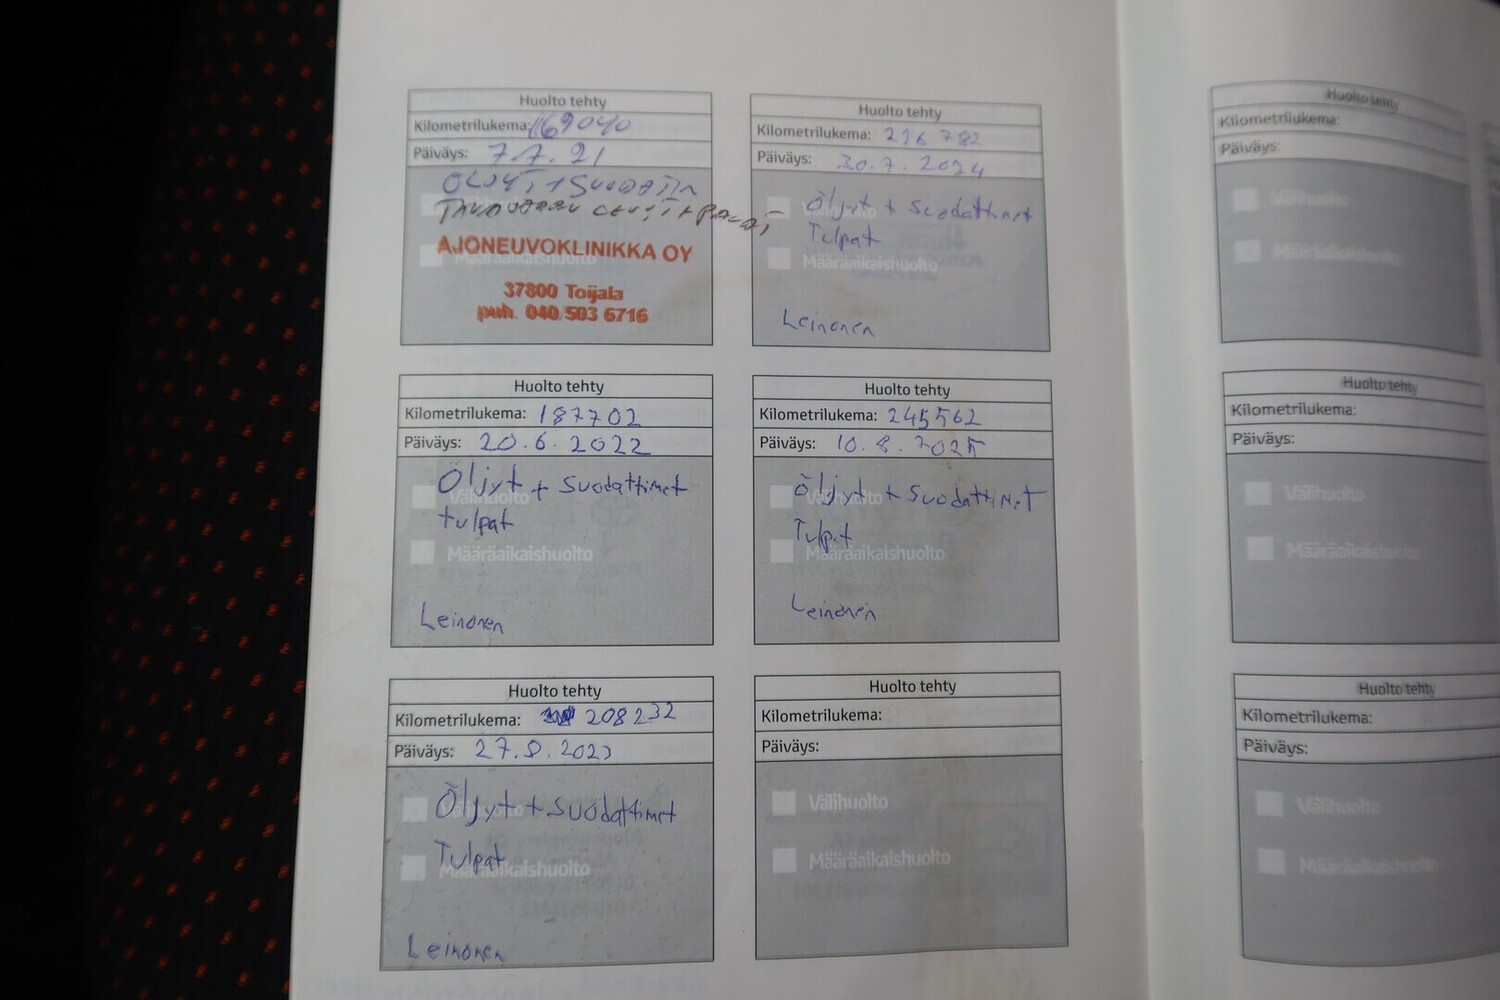 Huolto tehty
Kilometrilukema: 169040
Päiväys: 7.7.21
ÖLJYT + SUODATIN
AJONEUVOKLINIKKA OY
Määräaikaishuolto
37800 Toijala
puh. 040 503 6716
Huolto tehty
Kilometrilukema: 187702
Päiväys: 20.6.2022
Öljyt + Suodattimet
Välihuolto
tulpat
Määräaikaishuolto
Leinonen
Huolto tehty
Kilometrilukema: 208232
Päiväys: 27.8.2023
Öljyt + Suodattimet
Tulpat
Määräaikaishuolto
Leinonen
Huolto tehty
Kilometrilukema: 216782
Päiväys: 30.7.2024
Öljyt + Suodattimet
Tulpat
Määräaikaishuolto
Leinonen
Huolto tehty
Kilometrilukema: 245562
Päiväys: 10.8.2025
Öljyt + Suodattimet
Tulpat
Määräaikaishuolto
Leinonen
Huolto tehty
Kilometrilukema:
Päiväys:
Välihuolto
Määräaikaishuolto
Huolto tehty
Kilometrilukema:
Päiväys:
Välihuolto
Määräaikaishuolto
Huolto tehty
Kilometrilukema:
Päiväys:
Välihuolto
Määräaikaishuolto
Huolto tehty
Kilometrilukema:
Päiväys:
Välihuolto
Määräaikaishuolto